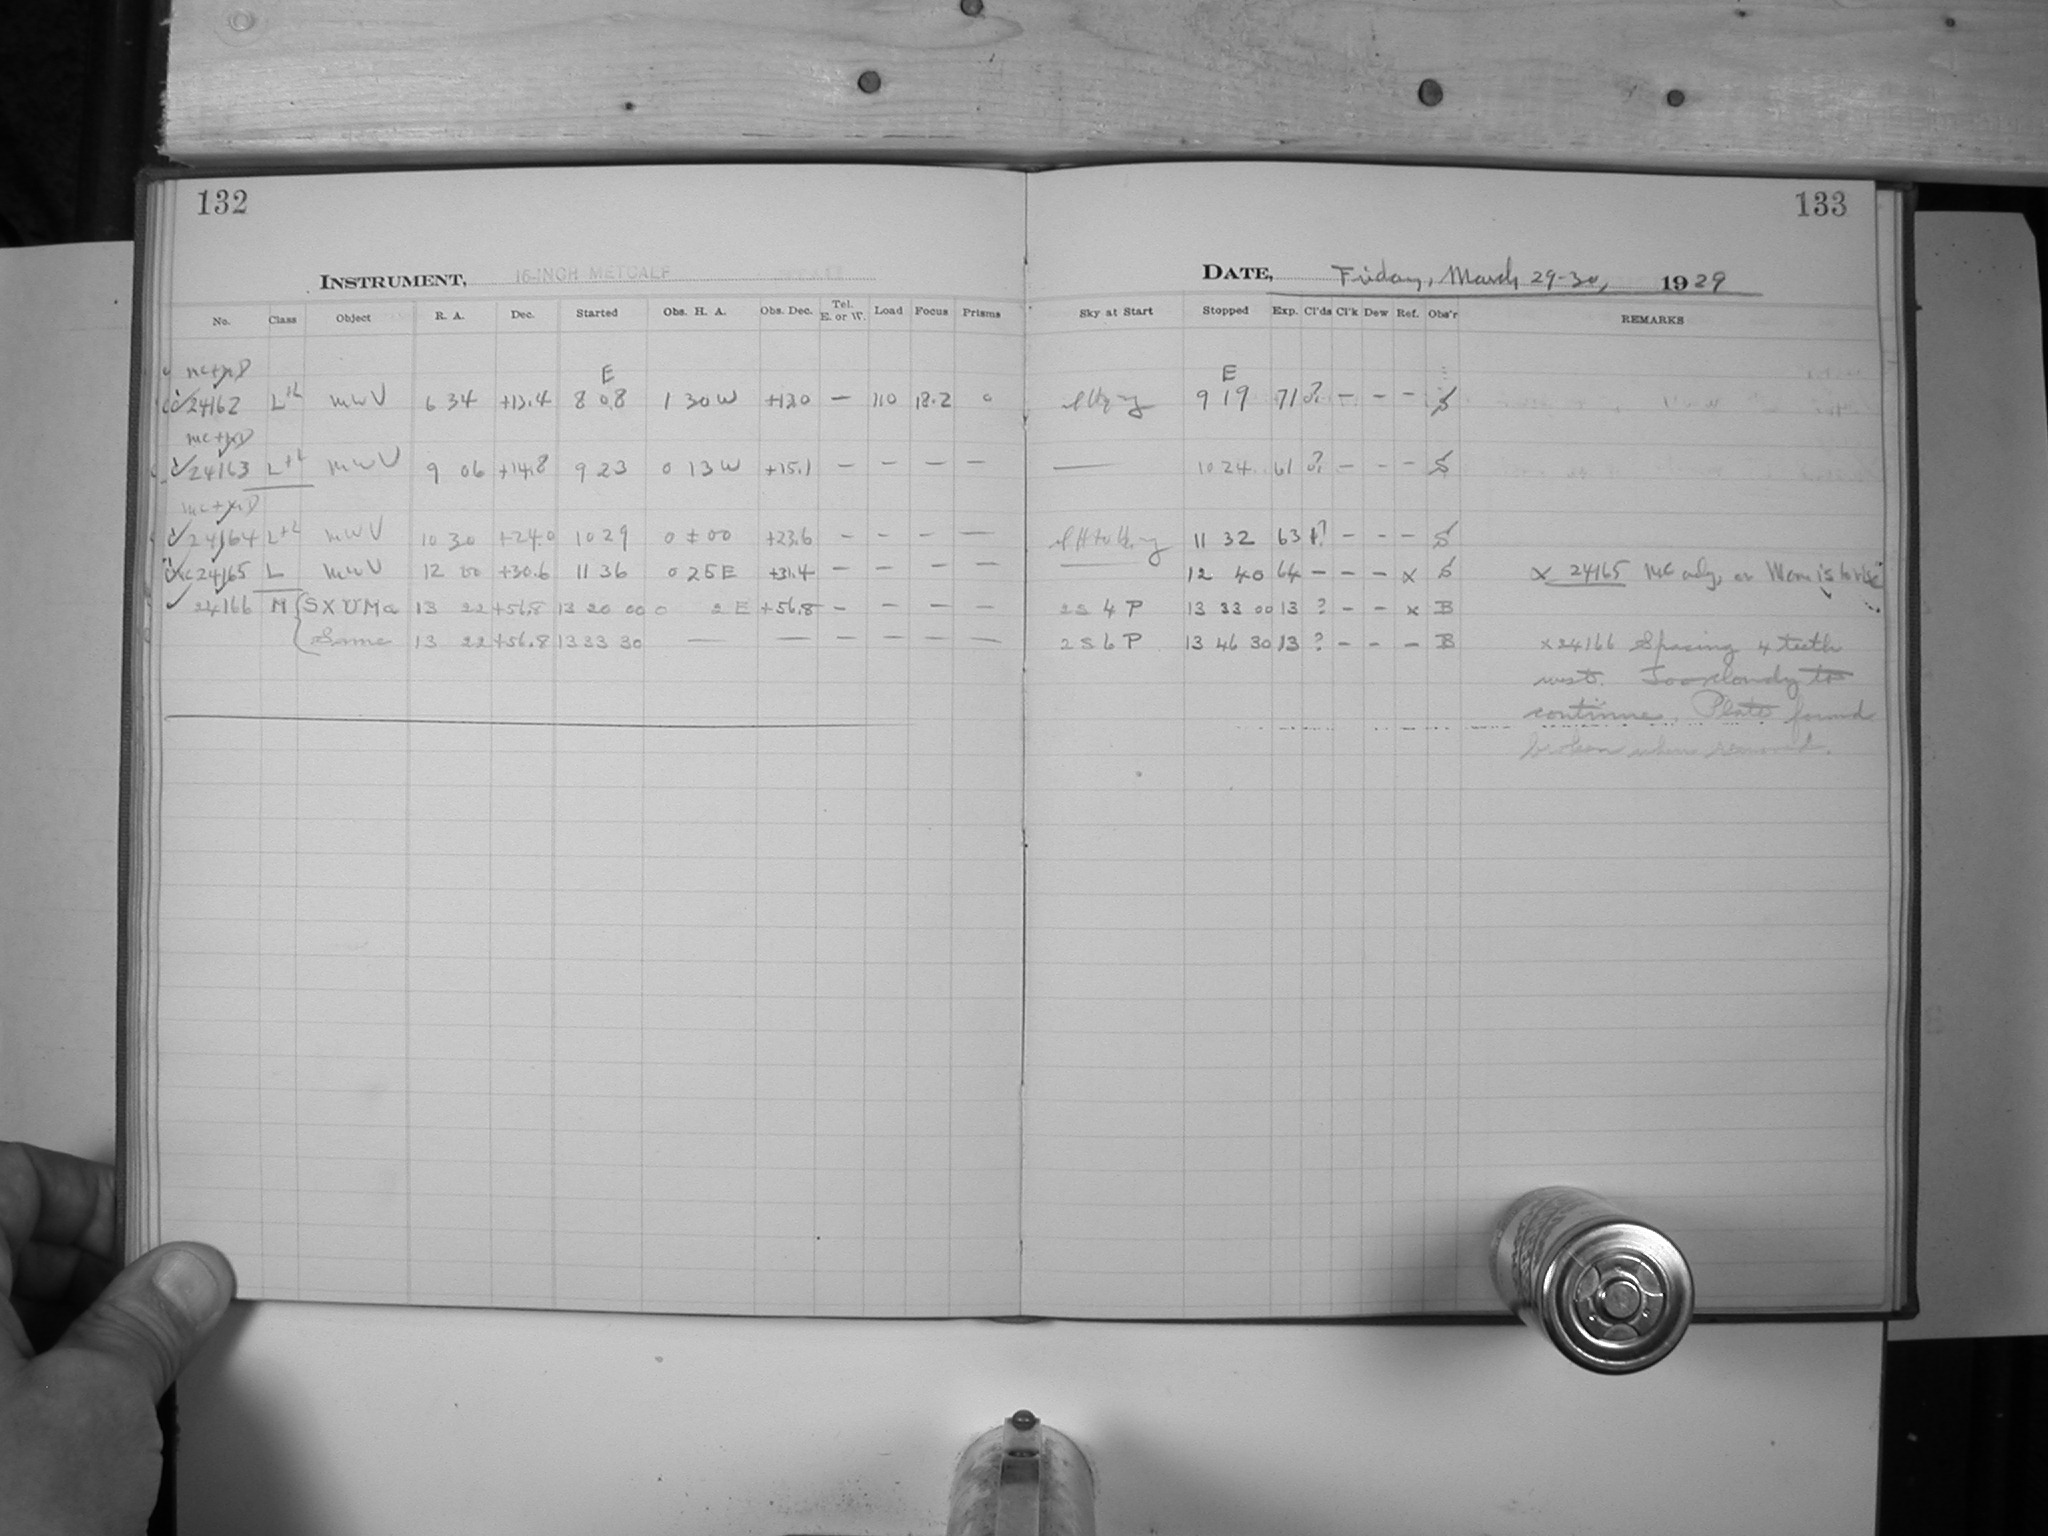 132
133
INSTRUMENT, 16-INCH METCALF
DATE, Friday, March 29-30, 1929
No. Class Object R. A. Dec. Started Obs. H. A. Obs. Dec. Tel. E. or W. Load Focus Prisms Sky at Start Stopped Exp. Cl'ds Cl'k Dew Ref. Obs'r REMARKS
E E
24162 L+L MWV 6 34 +13.4 8 08 1 30 W +13.0 — 110 18.2 0 9 19 71 ? – – – S
24163 L+L MWV 9 06 +14.8 9 23 0 13 W +15.1 – – – – — 10 24 61 ? – – – S
24164 L+L MWV 10 30 +24.0 10 29 0 ± 00 +23.6 – – – – 11 32 63 ? – – – S
MC 24165 L MWV 12 00 +30.6 11 36 0 25 E +31.4 – – – – — 12 40 64 – – – x S x 24165 MC only, as
24166 M SX UMa 13 22 +56.8 13 20 00 0 2 E +56.8 – – – – 2 S 4 P 13 33 00 13 ? – – x B
Same 13 22 +56.8 13 33 30 — — – – – – 2 S 6 P 13 46 30 13 ? – – – B x 24166 Spacing 4 teeth
west. Too cloudy to
continue. Plate found
broken when removed.